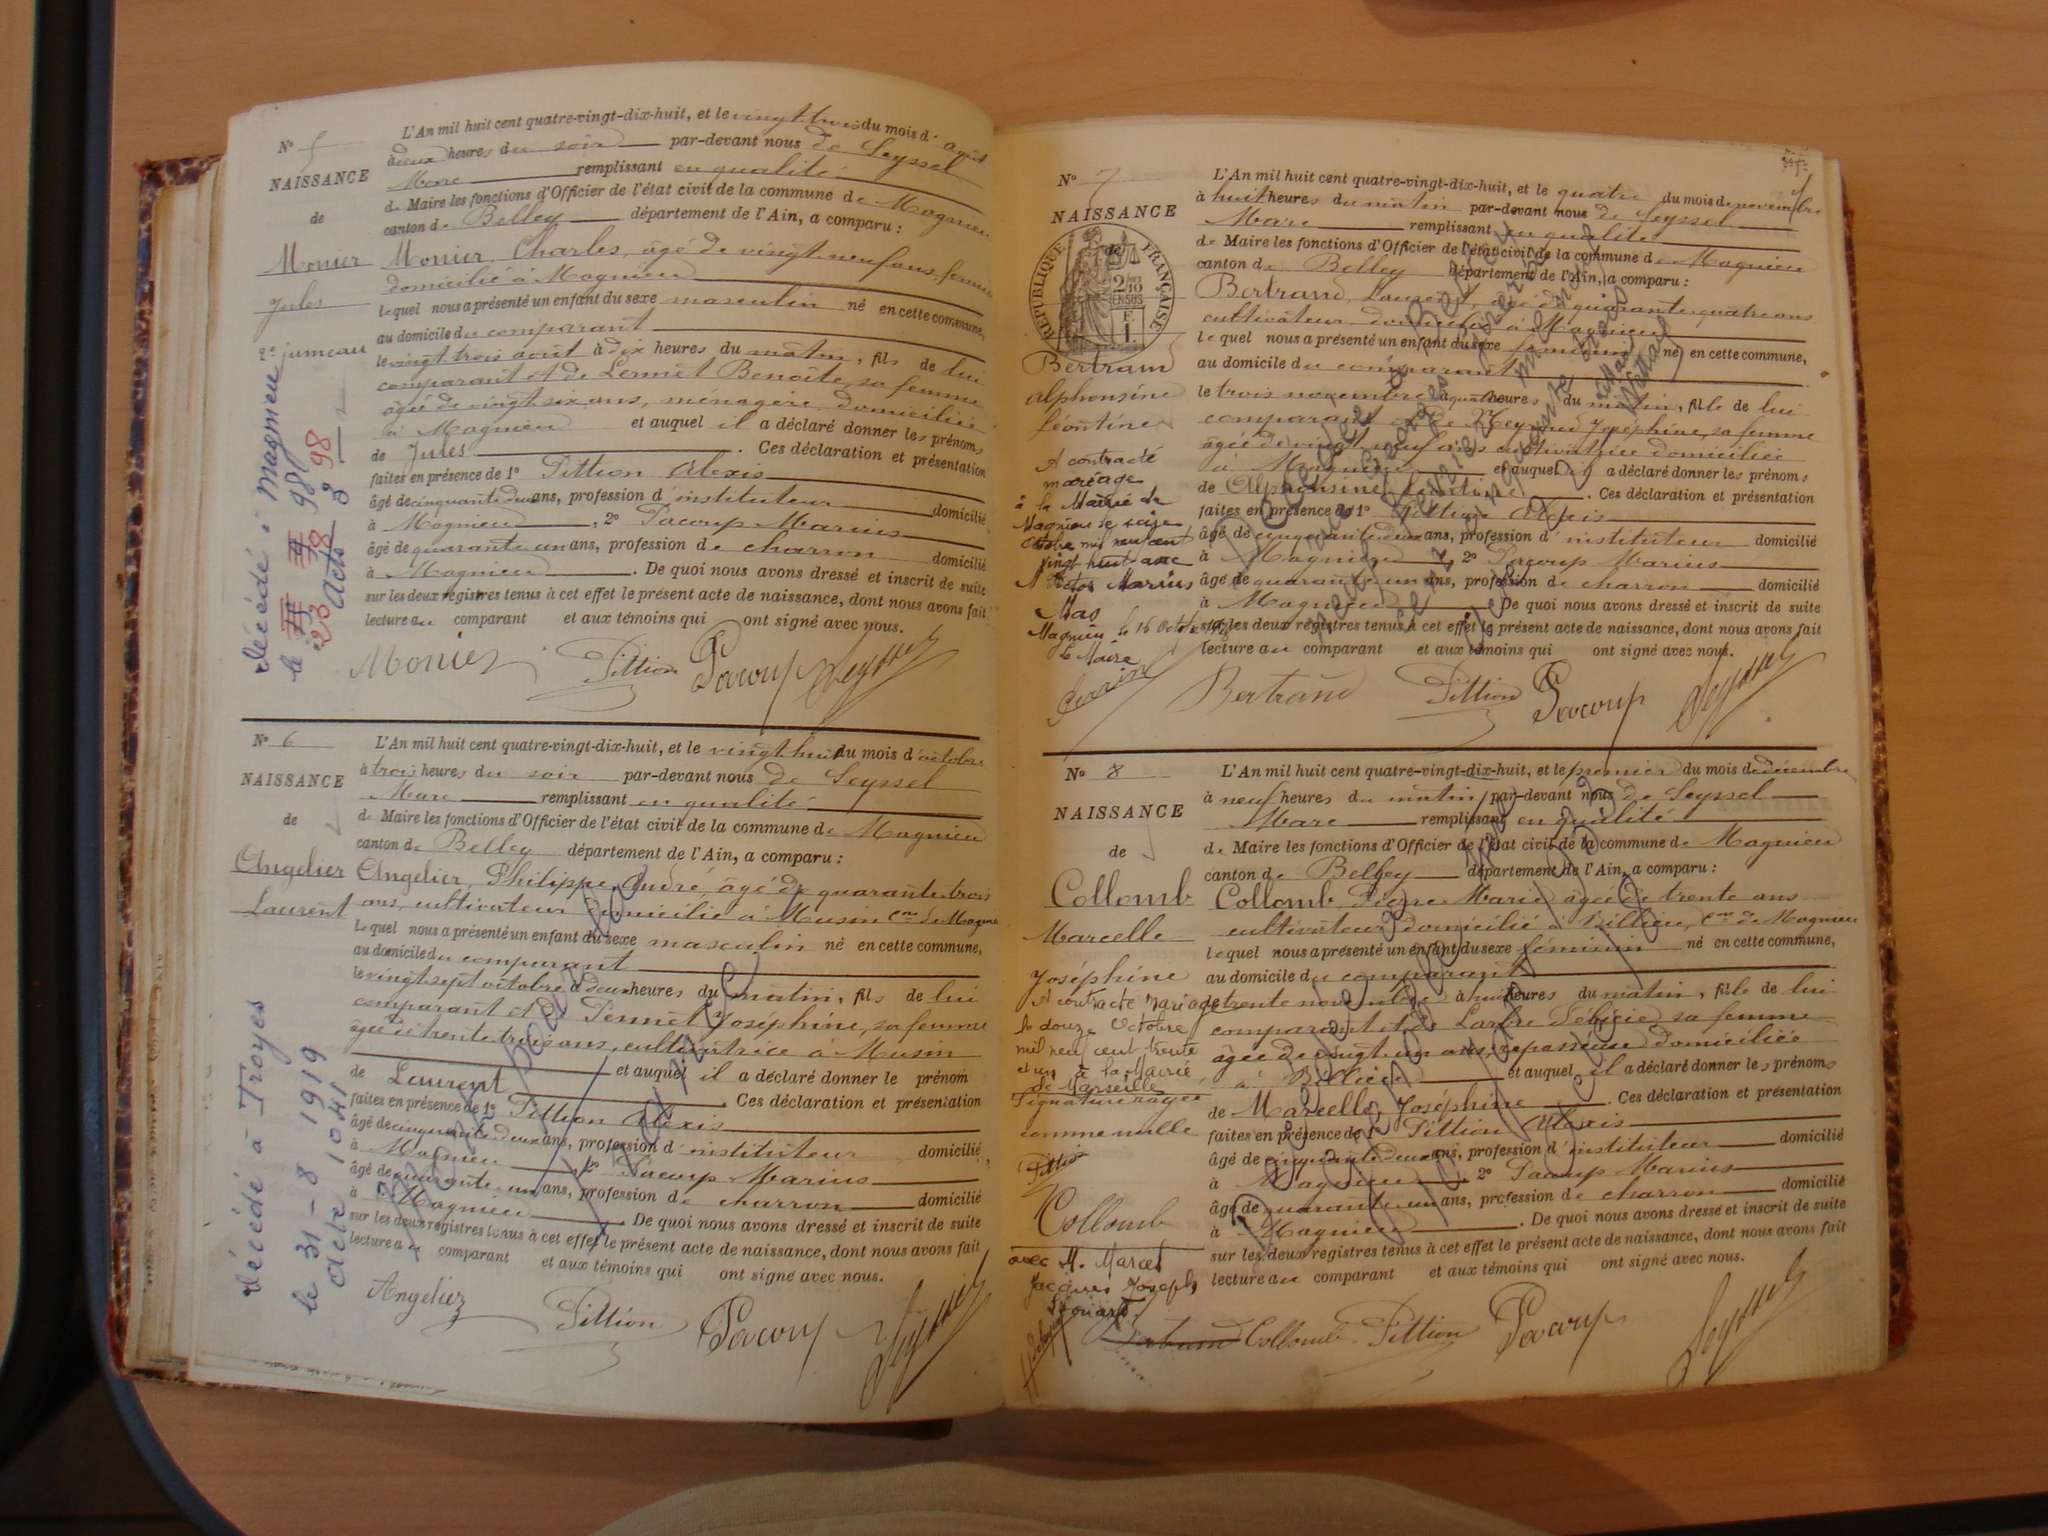 N° 5
NAISSANCE
de
Monier
Jules
2e jumeau
décédé à Magnieu
le 23 8 98
Acte 3
L'An mil huit cent quatre-vingt-dix-huit, et le vingt trois du mois d'août
à deux heures du soir par-devant nous de Seyssel
Marc remplissant en qualité
de Maire les fonctions d'Officier de l'état civil de la commune de Magnieu
canton de Belley département de l'Ain, a comparu :
Monier, Charles, âgé de vingt neuf ans, fermier
domicilié à Magnieu
lequel nous a présenté un enfant du sexe masculin né en cette commune,
au domicile du comparant
le vingt trois août à dix heures du matin, fils de lui
comparant et de Lermet Benoîte, sa femme
âgée de vingt six ans, ménagère domiciliée
à Magnieu et auquel il a déclaré donner les prénoms
de Jules . Ces déclaration et présentation
faites en présence de 1° Pittion Alexis
âgé de cinquante deux ans, profession d'instituteur domicilié
à Magnieu , 2° Pacoup Marius
âgé de quarante un ans, profession de charron domicilié
à Magnieu . De quoi nous avons dressé et inscrit de suite
sur les deux registres tenus à cet effet le présent acte de naissance, dont nous avons fait
lecture au comparant et aux témoins qui ont signé avec nous.
Monier Pittion Pacoup de Seyssel
N° 6
NAISSANCE
de
Angelier
Laurent
décédé à Troyes
le 31-8 1919
Acte 1041
L'An mil huit cent quatre-vingt-dix-huit, et le vingt huit du mois d'octobre
à trois heures du soir par-devant nous de Seyssel
Marc remplissant en qualité
de Maire les fonctions d'Officier de l'état civil de la commune de Magnieu
canton de Belley département de l'Ain, a comparu :
Angelier, Philippe André, âgé de quarante trois
ans, cultivateur domicilié à Musin Cne de Magnieu
lequel nous a présenté un enfant du sexe masculin né en cette commune,
au domicile du comparant
le vingt sept octobre à deux heures du matin, fils de lui
comparant et de Pennet Joséphine, sa femme
âgée de trente trois ans, cultivatrice à Musin
et auquel il a déclaré donner le prénom
de Laurent . Ces déclaration et présentation
faites en présence de 1° Pittion Alexis
âgé de cinquante deux ans, profession d'instituteur domicilié
à Magnieu 2° Pacoup Marius
âgé de quarante un ans, profession de charron domicilié
à Magnieu . De quoi nous avons dressé et inscrit de suite
sur les deux registres tenus à cet effet le présent acte de naissance, dont nous avons fait
lecture au comparant et aux témoins qui ont signé avec nous.
Angelier Pittion Pacoup de Seyssel
N° 7
NAISSANCE
de
RÉPUBLIQUE FRANÇAISE
Bertrand
Alphonsine
Léontine
A contracté
mariage
à la Mairie de
Magnieu le seize
Octobre mil neuf cent
vingt huit avec
Victor Marius
Mas
Magnieu le 16 Octobre
Le Maire
L'An mil huit cent quatre-vingt-dix-huit, et le quatre du mois de novembre
à huit heures du matin par-devant nous de Seyssel
Marc remplissant en qualité
de Maire les fonctions d'Officier de l'état civil de la commune de Magnieu
canton de Belley département de l'Ain, a comparu :
Bertrand, Laurent, âgé de quarante quatre ans
cultivateur domicilié à Magnieu
lequel nous a présenté un enfant du sexe féminin né en cette commune,
au domicile du comparant
le trois novembre à quatre heures du matin, fille de lui
comparant et de Meynard Joséphine, sa femme
âgée de vingt neuf ans cultivatrice domiciliée
à Magnieu et auquel il a déclaré donner les prénoms
de Alphonsine Léontine . Ces déclaration et présentation
faites en présence de 1° Pittion Alexis
âgé de cinquante deux ans, profession d'instituteur domicilié
à Magnieu 2° Pacoup Marius
âgé de quarante un ans, profession de charron domicilié
à Magnieu . De quoi nous avons dressé et inscrit de suite
sur les deux registres tenus à cet effet le présent acte de naissance, dont nous avons fait
lecture au comparant et aux témoins qui ont signé avec nous.
Bertrand Pittion Pacoup de Seyssel
N° 8
NAISSANCE
de
Collomb
Marcelle
Joséphine
A contracté mariage
le douze Octobre
mil neuf cent trente
et un à la Mairie
de Marseille
Signature rayée
comme nulle
Pittion
Collomb
avec M. Marcel
Jacques Joseph
L'An mil huit cent quatre-vingt-dix-huit, et le premier du mois de décembre
à neuf heures du matin par-devant nous de Seyssel
Marc remplissant en qualité
de Maire les fonctions d'Officier de l'état civil de la commune de Magnieu
canton de Belley département de l'Ain, a comparu :
Collomb, Pierre Marie âgé de trente ans
cultivateur domicilié à Billieu, Cne de Magnieu
lequel nous a présenté un enfant du sexe féminin né en cette commune,
au domicile du comparant
le trente novembre à huit heures du matin, fille de lui
comparant et de Larbre Félicie, sa femme
âgée de vingt un ans, repasseuse domiciliée
à Billieu et auquel il a déclaré donner les prénoms
de Marcelle, Joséphine . Ces déclaration et présentation
faites en présence de 1° Pittion Alexis
âgé de cinquante deux ans, profession d'instituteur domicilié
à Magnieu 2° Pacoup Marius
âgé de quarante un ans, profession de charron domicilié
à Magnieu . De quoi nous avons dressé et inscrit de suite
sur les deux registres tenus à cet effet le présent acte de naissance, dont nous avons fait
lecture au comparant et aux témoins qui ont signé avec nous.
Bertrand Collomb Pittion Pacoup de Seyssel